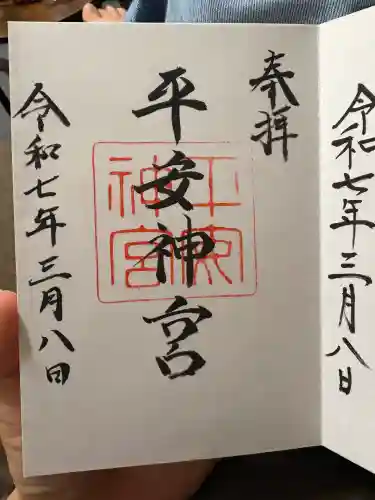 令和七年三月八日
奉拝
平安神宮
平安
神宮
令和七年三月八日